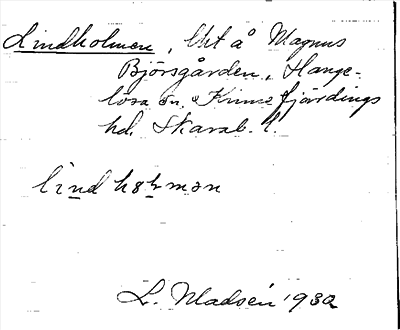 Lindholmen, lht å Magnus
Björsgården, Hange-
lösa sn, Kinne fjärdings
hd, Skarab. l.
lindhɷlmən
L. Madsén 1932